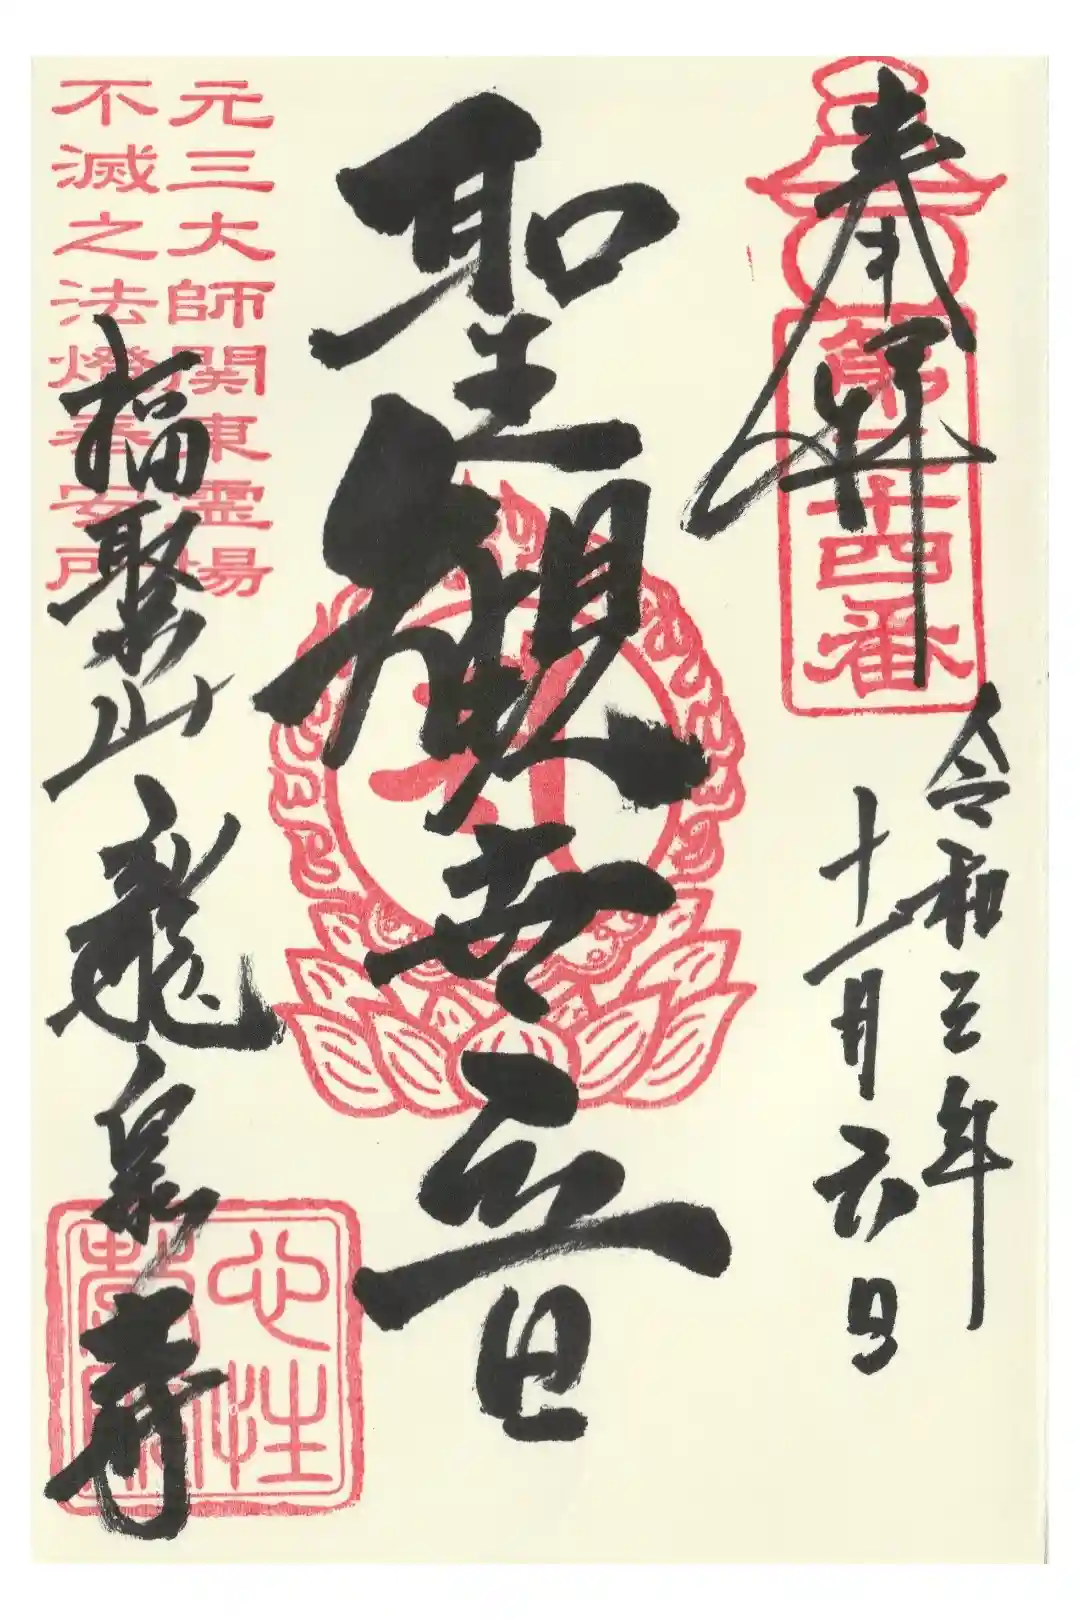 奉拝
第二十四番
令和三年
十一月六日
聖観世音
元三大師関東霊場
不滅之法燈奉安所
福聚山龍泉寺
心性